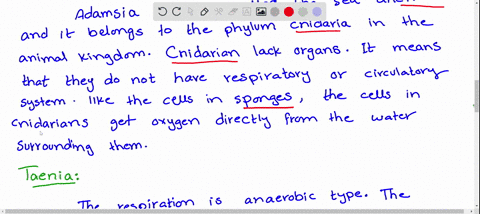 the sea
Adamsia
and it belongs to the phylum cnidaria in the
animal kingdom. Cnidarian lack organs. It means
that they do not have respiratory or circulatory
system. like the cells in sponges, the cells in
cnidarians get oxygen directly from the water
surrounding them.
Taenia:
The respiration is anaerobic type. The